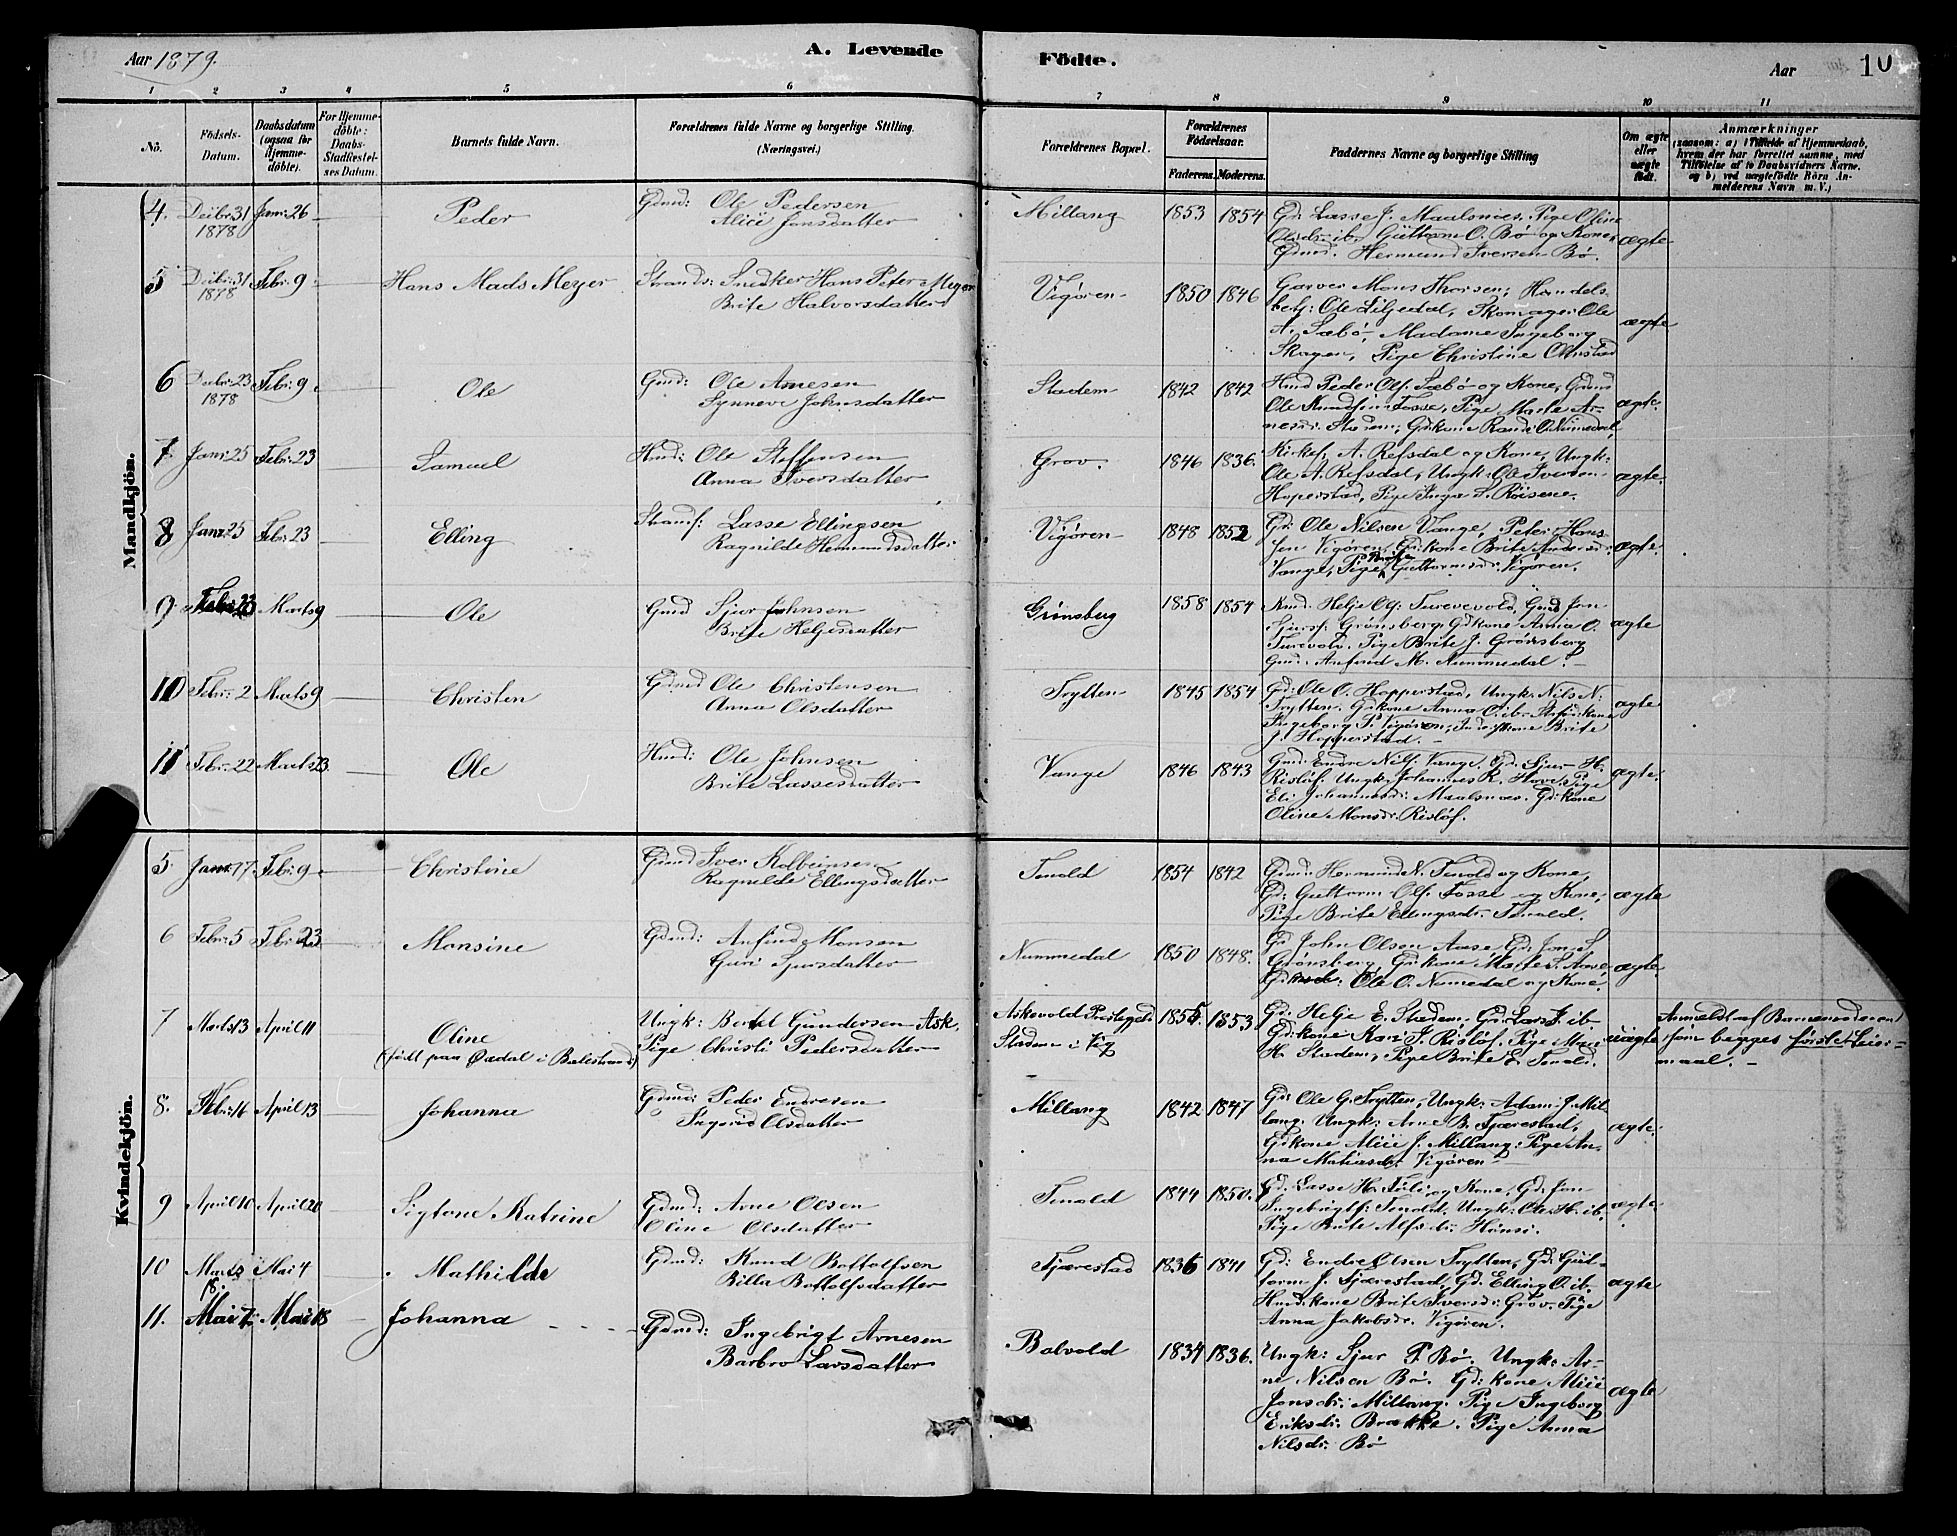 Aar 1879.
A. Levende
Födte.
Aar
10
1 2 3 4 5 6 7 8 9 10 11
No.
Födsels-
Datum.
Daabsdatum
(ogsaa for
Hjemme-
döbte).
For Hjemme-
döbte:
Daabs-
Stadfæstel-
ses Datum.
Barnets fulde Navn.
Forældrenes fulde Navne og borgerlige Stilling.
(Næringsvei.)
Forældrenes Bopæl.
Forældrenes
Födselsaar.
Faderens. Moderens.
Faddernes Navne og borgerlige Stilling
Om ægte
eller
uægte
födt.
Anmærkninger
(saasom: a) i Tilfælde af Hjemmedaab,
hvem der har forrettet samme, med
Tilföielse af to Daabsvidners Navne.
og b) ved uægtefödte Börn An-
melderens Navn m. V.)
Mandkjön.
4. Debr: 31 1878 Janr: 26 Peder Gdmd: Ole Pedersen
Alice Jonsdatter
Millang 1853 1854 Gd: Lasse J. Maalsnæs. Pige Oline
Olsdr: ib. Guttorm O. Bø og Kone,
Gdmd. Hermund Iversen Bø. ægte
5 Debr: 31 1878 Febr: 9 Hans Mads Meyer Strands: Snedker Hans Peter Meyer
Brite Halvorsdatter
Vigøren 1850 1846 Garver Mons Thorsen, Handels-
betj: Ole Liljedal, Skomager Ole
A. Sæbø, Madame Ingeborg
Skagen, Pige Christine Olmstad ægte
6 Debr: 23 1878 Febr: 9 Ole Gmd: Ole Arnesen
Synneve Johnsdatter
Stadem 1842 1842 Hmd Peder Ols. Sæbø og Kone, Gdmd
Ole Knudsen Fosse, Pige Marte Ar-
nesdr: Stadem, Gdkone Randi O. Nummedal, ægte.
7 Janr: 25 Febr: 23 Samuel Hmd: Ole Steffensen
Anna Iversdatter
Grov. 1846 1836. Kirkes. A. Refsdal og Kone, Ungk:
Ole A. Refsdal, Ungk: Ole Iversen
Hoperstad, Pige Inga S. Røisene. ægte.
8 Janr: 25 Febr: 23 Elling Strands: Lasse Ellingsen
Ragnilde Hermundsdatter
Vigøren 1848 1852 Gd: Ole Nilsen Vange, Peter Hans-
sen Vigøren, Gd: kone Brite Andersdr:
Vange, Pige Guttormsdr: Vigøren. ægte.
9 Febr: 23 Marts 9 Ole Gmd Sjur Johnsen
Brite Heljesdatter
Grønsberg 1858 1854 Kmd: Helje Ols. Turevold, Gmd Jon
Sjurs. Grønsberg, Gdkone Anna O.
Turevold, Pige Brite J. Grønsberg
Gmd: Anfind M. Nummedal. ægte
10 Febr: 2 Marts 9 Christen Gdmd Ole Christensen
Anna Olsdatter
Trytten 1845 1854 Gd: Ole O. Hopperstad, Ungk: Nils N.
Trytten. Gdkone Anna O. ib.
Ingeborg P. Vigøren, Brite
J. Hopperstad. ægte
11 Febr: 22 Marts 23. Ole Hmd: Ole Johnsen
Brite Lassesdatter
Vange 1846 1843 Gmd: Endre Nils. Vange, Gd: Sjur H.
Risløf, Ungk: Johannes R. Hove, Pige
Eli Johannesdr: Maalsnæs. Gd: kone
Oline Monsdr. Risløf. ægte.
Kvindekjön.
5. Janr: 17 Febr: 9 Christine Gdmd Iver Kolbeinsen
Ragnilde Ellingsdatter
Tenold 1854 1842 Gdmd: Hermund N. Tenold og Kone,
Gd: Guttorm Ols. Fosse og Kone,
Pige Brite Ellingsdr: Tenold. ægte
6 Febr: 5 Febr: 23 Monsine Gdmd: Anfind Monsen
Guri Sjursdatter
Nummedal 1850 1848. Gd: John Olsen Aase, Gd: Jon S.
Grønsberg, Gd: kone Marte S. Aase
Gd: Ole O. Nummedal og Kone. ægte
7 Marts 13 April 11 Oline
(født paa Ørdal i Balestrand) Ungk: Bertel Gundersen Ask.
Pige Christi Pedersdatter
Askevold Prestegjeld
Stadem i Vig 1855. 1853 Gd: Helje E. Stadem, Gd: Lars J. ib.
Gd: kone Kari J. Risløf, Pige Mari
H. Stadem, Pige Brite E. Tenold. uægte
Anmeldt af Barnemoderen
som begges første Leier-
maal. -
8. Febr: 16 April 13 Johanna Gdmd: Peder Endresen
Ingrid Olsdatter
Millang 1842 1847 Gd: Ole G. Trytten, Ungk: Adam J. Mil-
lang, Ungk: Arne B. Tjærestad,
Gd: kone Alice J. Millang, Pige An-
na Mattiasdr: Vigøren ægte.
9 April 10 April 20 Sigtone Katrine Gdmd: Arne Olsen
Oline Olsdatter
Tenold 1844 1850. Gd: Lasse H. Føli og Kone, Gd: Jon
Ingebrigts. Tenold, Ungk: Ole H. ib.
Pige Brite Alfsdr: Hønsi. ægte.
10 Marts 18. Mai 4 Mathilde Gdmd: Knud Bottolfsen
Billa Bottolfsdatter
Tjærestad 1836 1841 Gd: Endre Olsen Trytten, Gd: Gut-
torm J. Tjærestad, Gd. Elling O. ib.
Hmd: kone Brite Iversdr: Grov. Pige
Anna Jakobsdr. Vigøren. ægte
11. Mai 7 Mai 18 Johanna Gdmd: Ingebrigt Arnesen
Barbro Larsdatter
Bolvold 1834 1836. Ungk: Sjur P. Bø. Ungk: Ar-
ne Nilsen Bø. Gd: kone Alice
Jonsdr. Millang. Pige Ingeborg
Eriksdr. Brække. Pige Anna
Nilsdr. Bø ægte